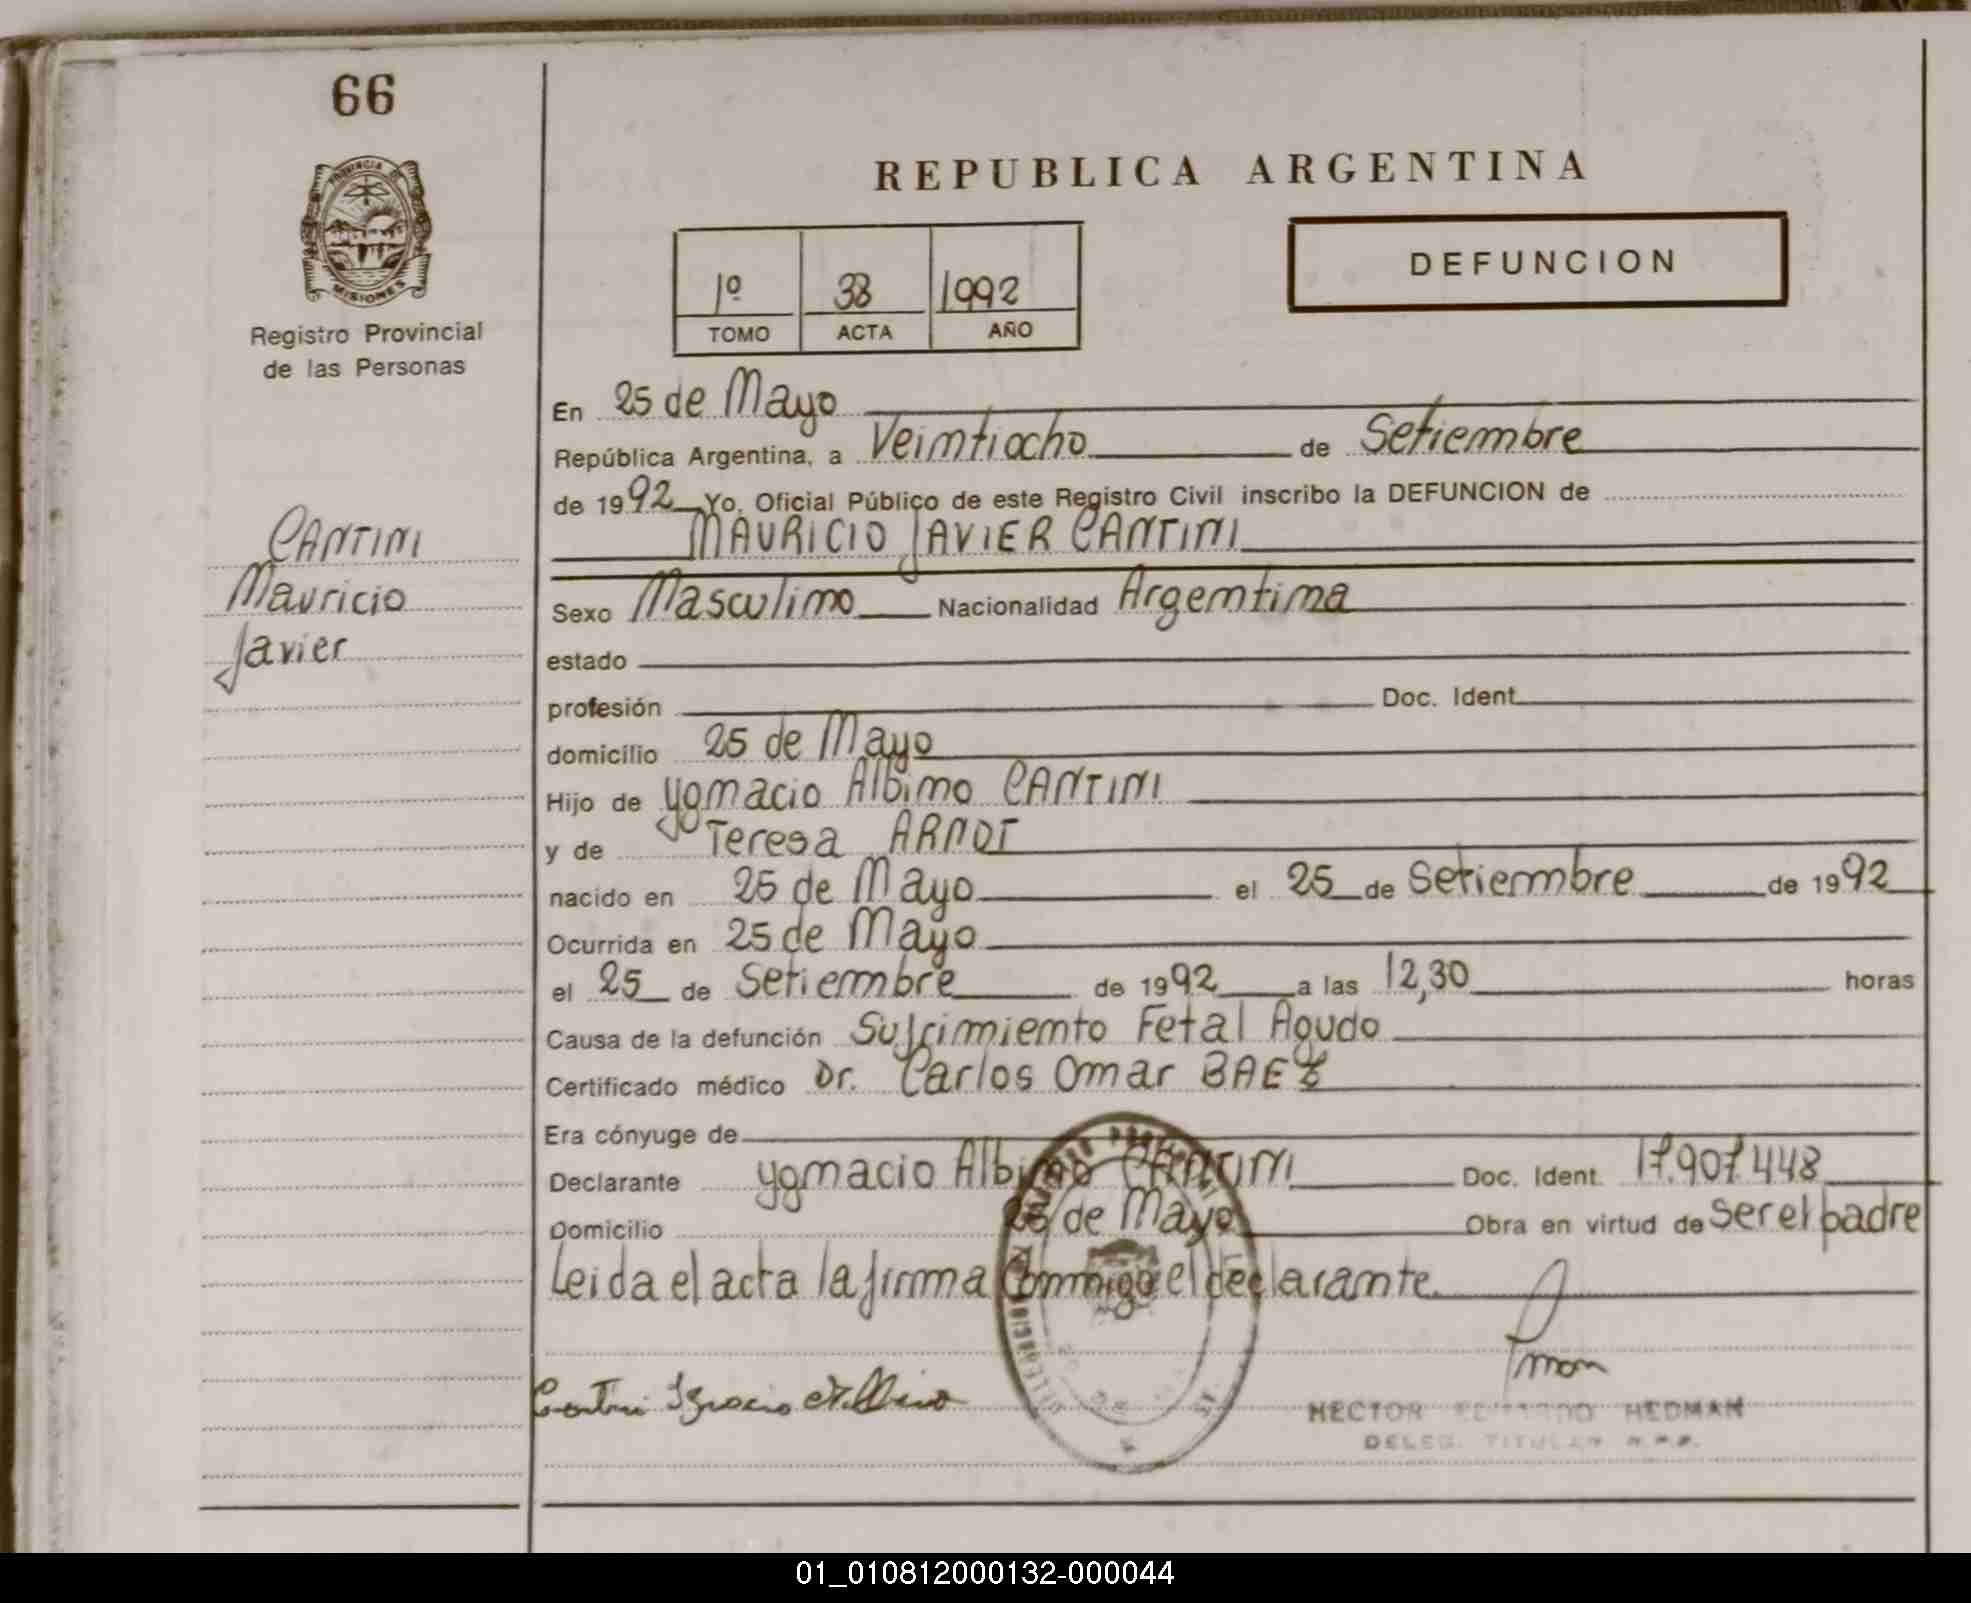 66
PROVINCIA DE
MISIONES
Registro Provincial
de las Personas
CANTINI
Mauricio
Javier
REPUBLICA ARGENTINA
1º 33 1992
TOMO ACTA AÑO
DEFUNCION
En 25 de Mayo
República Argentina, a Veintiocho de Setiembre
de 1992 Yo, Oficial Público de este Registro Civil inscribo la DEFUNCION de
MAURICIO JAVIER CANTINI
Sexo Masculino Nacionalidad Argentina
estado
profesión Doc. Ident.
domicilio 25 de Mayo
Hijo de Ygnacio Albino CANTINI
y de Teresa ARNDT
nacido en 25 de Mayo el 25 de Setiembre de 1992
Ocurrida en 25 de Mayo
el 25 de Setiembre de 1992 a las 12,30 horas
Causa de la defunción Sufrimiento Fetal Agudo
Certificado médico Dr. Carlos Omar BAEZ
Era cónyuge de
Declarante Ygnacio Albino CANTINI Doc. Ident. 17.907.448
Domicilio 25 de Mayo Obra en virtud de Ser el padre
Leida el acta la firma Conmigo el declarante.
Cantini Ignacio Albino
HECTOR EDUARDO HEDMAN
DELEG. TITULAR R.P.P.
01_010812000132-000044